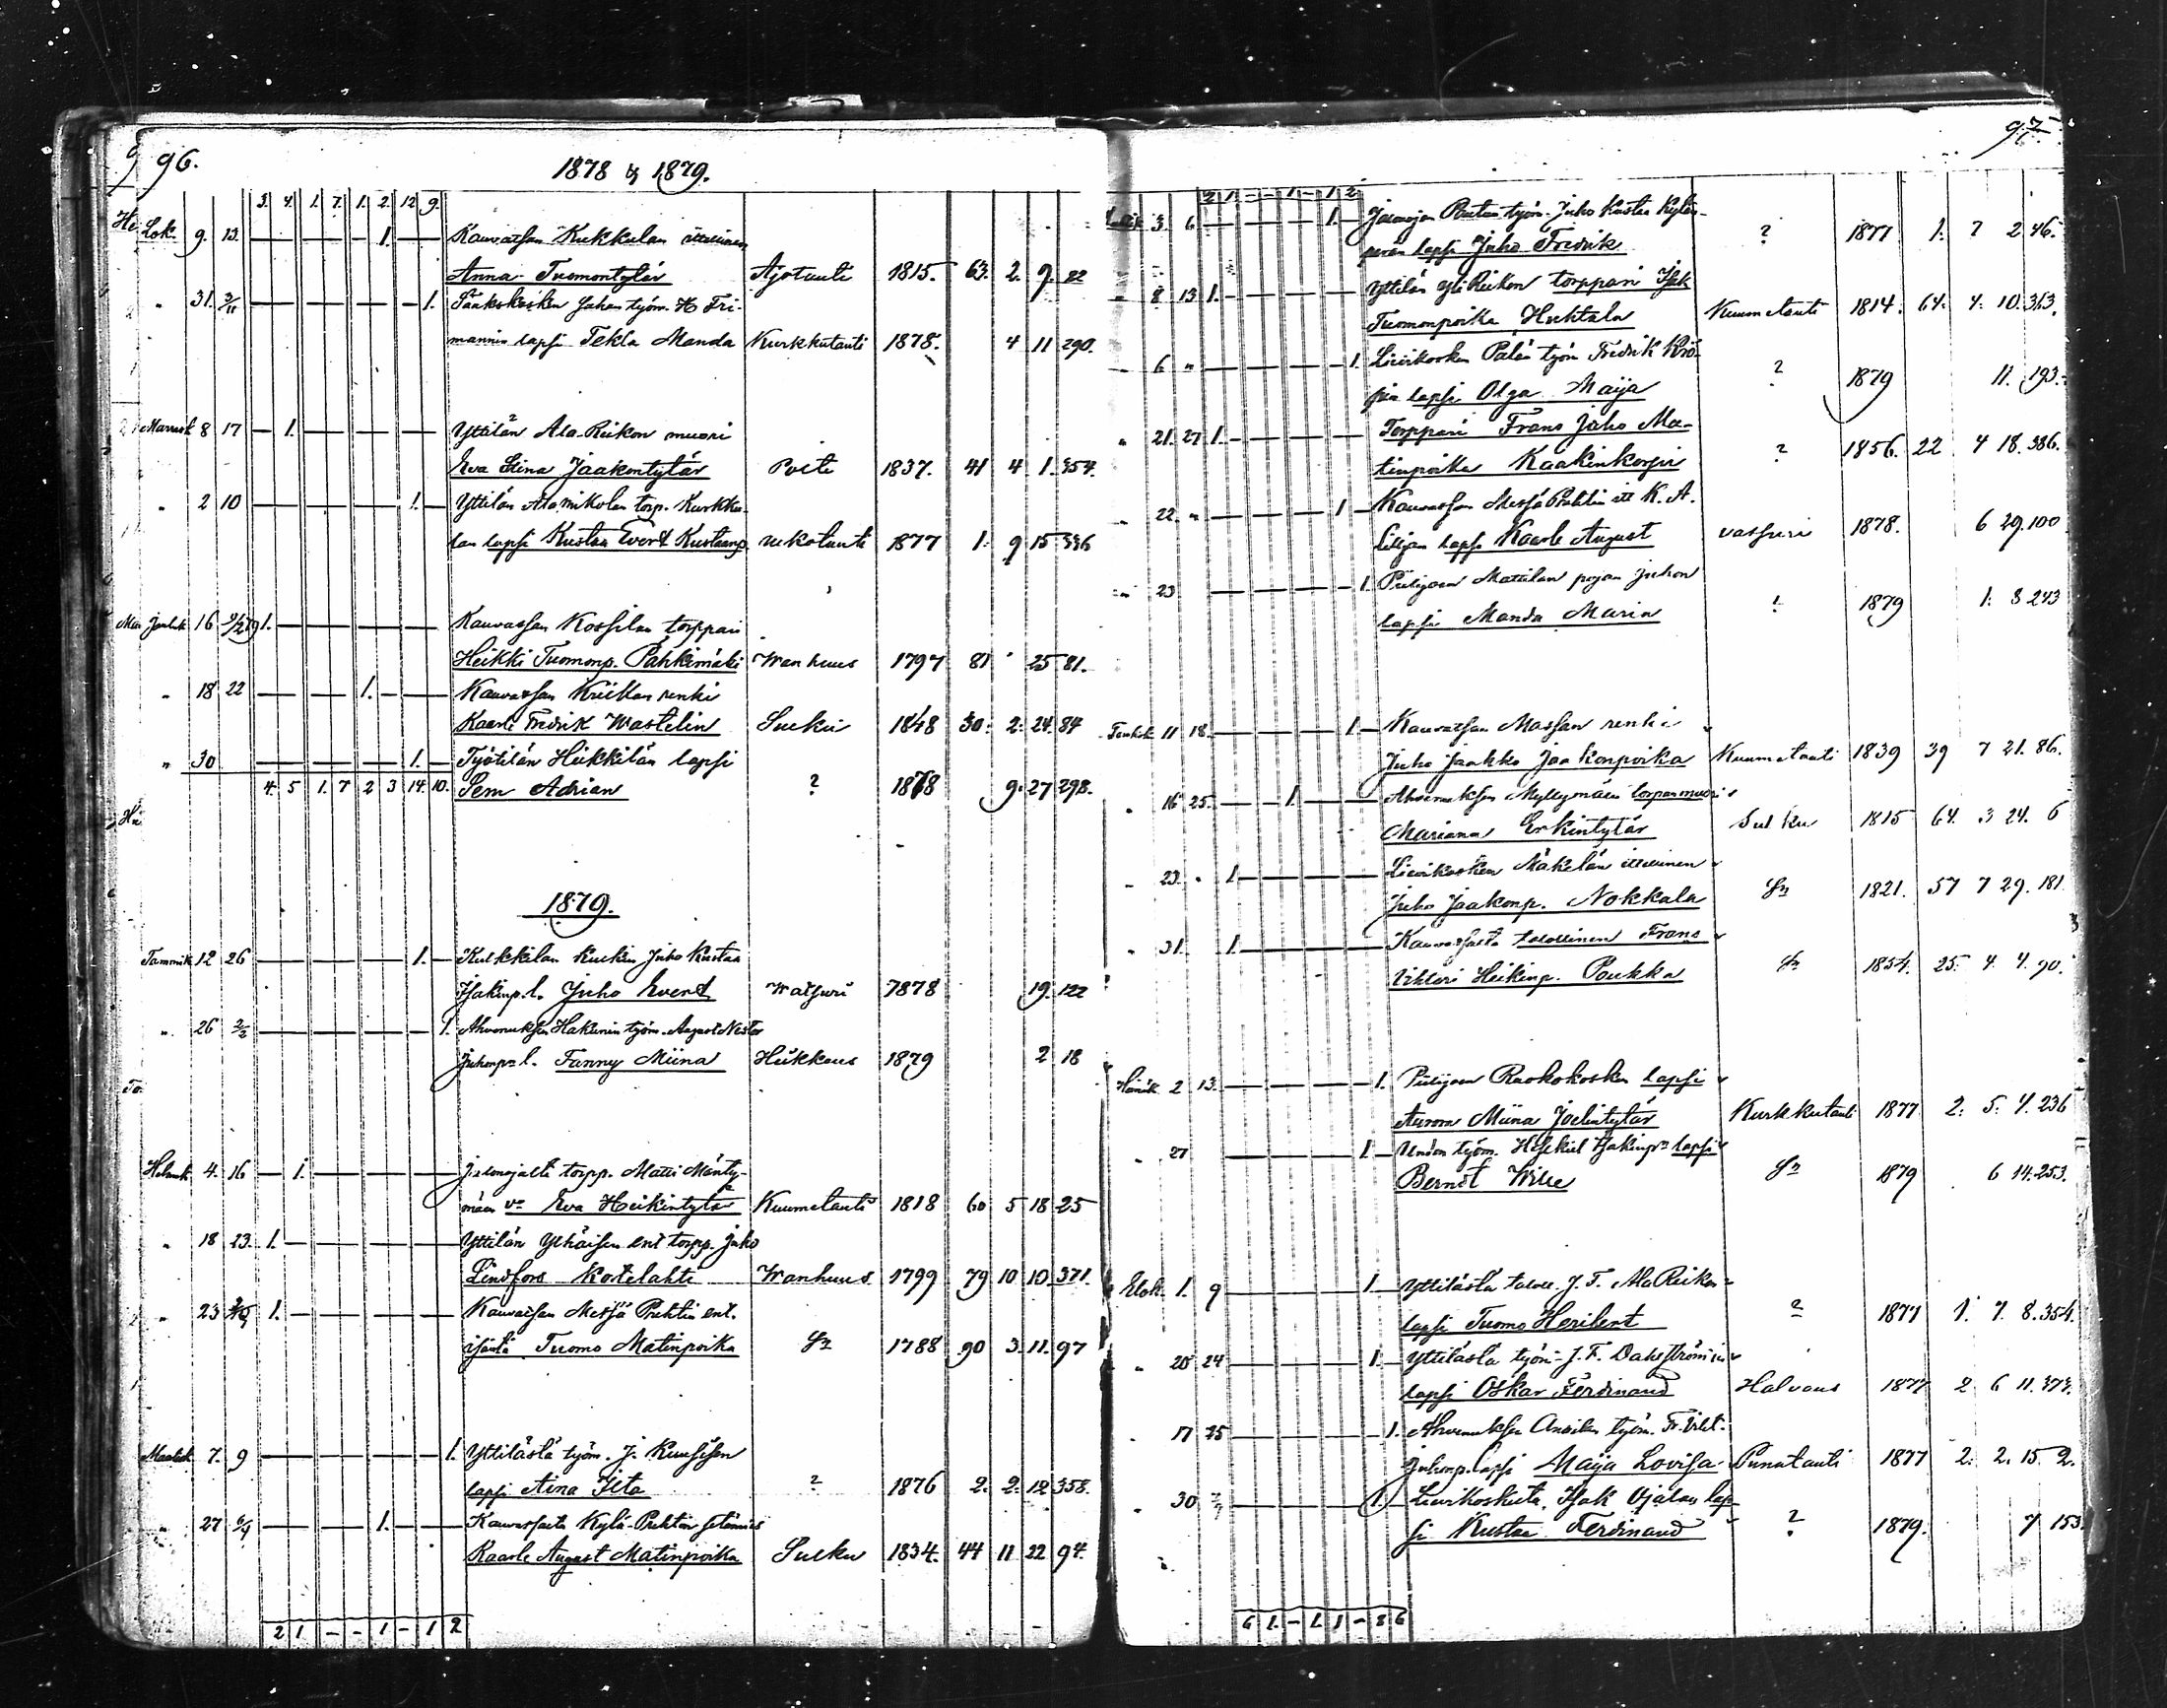 96.
1878 & 1879.
3. 4. 1. 7. 1. 2. 12 9.
Lok. 9. 13. 1. Kauvatsan Kukkulan itsellinen
Anna Tuomontytär Ajotauti 1815. 63. 2. 9. 22
" 31. 3/11 1. Sääkskosken Juhan työm. H Fri-
mannin lapsi Tekla Manda Kurkkutauti 1878. 4 11 290.
Marrask 8 17 1. Yttilän Ala-Riikon muori
Eva Stina Jaakontytär Poite 1837. 41 4 1. 354.
" 2 10 1. Yttilän Alamikolan torp. Kurkku-
lan lapsi Kustaa Evert Kustaanp. 1877 1. 9 15 336
Jouluk 16 1. Kauvatsan Kossilan torppari
Heikki Tuomonp. Pähkimäki Wanhuus 1797 81 25 81.
" 18 22 1. Kauvatsan Kriikan renki
Kaarle Fredrik Wastelin Suku 1848 30. 2. 24. 84
" 30 1. Työtilän Hiikkilän lapsi
4. 5 1. 7 2 3 14. 10. Sem Adrian ? 1878 9. 27 298.
1879.
Tammik 12 26 1. Kulkkilan Juho Kustaa
Isakinp. l. Juho Evert Watsuri 1878 19. 122
" 26 2/2 1. Ahvenuksen Hakunin työm. August Nestor
Juhonp. l. Fanny Miina Hiukkaus 1879 2 18
Helmik 4. 16 1. Jalonojalta torpp. Matti Mänty-
mäen vo Eva Heikintytär Kuumetauti 1818 60 5 18 25
" 18 23. 1. Yttilän Ylhäisen ent torpp. Juho
Lindfors Kostelahti Wanhuus. 1799 79 10 10. 371.
" 23 1. Kauvatsan Metsä Prehtin ent.
isäntä Tuomo Matinpoika Sn 1788 90 3. 11. 97
Maalisk 7. 9 1. Yttilästä työm. J. Kuusisen
lapsi Aina Ita ? 1876 2. 2. 12 358.
" 27 6/4 1. Kauvatsalta Kylä-Prehtin setämies
Kaarle August Matinpoika Sucku 1834. 44 11 22 94.
2 1 - - 1 - 1 2
97.
2 1 - - 1 - 1 2
3. 6 1. Jalonojan työm. Juho Kustaa Kylän-
perän lapsi Juho Fredrik ? 1877 1. 7 2 46.
" 8 13 1. Yttilän Yli Riikon torppari Isak
Tuomonpoika Huhtala Kuumetauti 1814. 64. 4. 10. 363.
6 " 1. Lievikosken Palän työm Fredrik
lapsi Olga Maija ? 1879 11. 193.
" 21. 27 1. Torppari Frans Juho Ma-
tinpoika Kaakinkorpi ? 1856. 22 4 18. 386.
" 22. " 1 Kauvatsan Metsä Prehtin itt K. A.
Liljan lapsi Kaarle August vatsuri 1878. 6 29. 100
" 23 1. Piilijoen Mattilan pojan Juhon
lapsi Manda Maria ! 1879 1. 8 243
Toukok 11 18. 1. Kauvatsan Massan renki
Juho Jaakko Jaakonpoika Kuumetauti 1839 39 7 21. 86.
" 16 25. 1. Ahvenuksen Myllymäen torpan muori
Mariana Erkintytär Suku 1815 64. 3 24. 6
" 23. " 1 Lievikosken Mäkelän itsellinen
Juho Jaakonp. Nokkala Sn 1821. 57 7 29. 181
" 31. 1. Kauvatsalta talollinen Frans
Vihtori Heikinp. Poukka Sn 1854. 25. 4. 4. 90.
Heinäk 2 13. 1. Piilijoen Raokokosken lapsi
Aurora Miina Joelintytär Kurkkutauti 1877. 2. 5. 4. 236
" 27 1. työm. Heskiel Isakinpn lapsi
Berndt Wille Sn 1879 6 14. 253.
Elok. 1. 9 1. Yttilästä taloll. J. F. Ala Riikon
lapsi Tuomo Heribert ? 1877 1. 7. 8. 354.
" 20 24 1. Yttilästä työm. J. F. Dahlströmin
lapsi Oskar Ferdinand Halvaus 1877 2 6 11. 373.
" 17 25 1. Ahvenuksen Anvikn työm. Fr. Vilet.
Juhonp. lapsi Maija Lovisa Punatauti 1877 2. 2. 15. 2.
" 30 1. Lievikoskelta, Isak Ojalan lap-
si Kustaa Ferdinand ? 1879. 7 153
6 1. - 1. 1 - 8 6